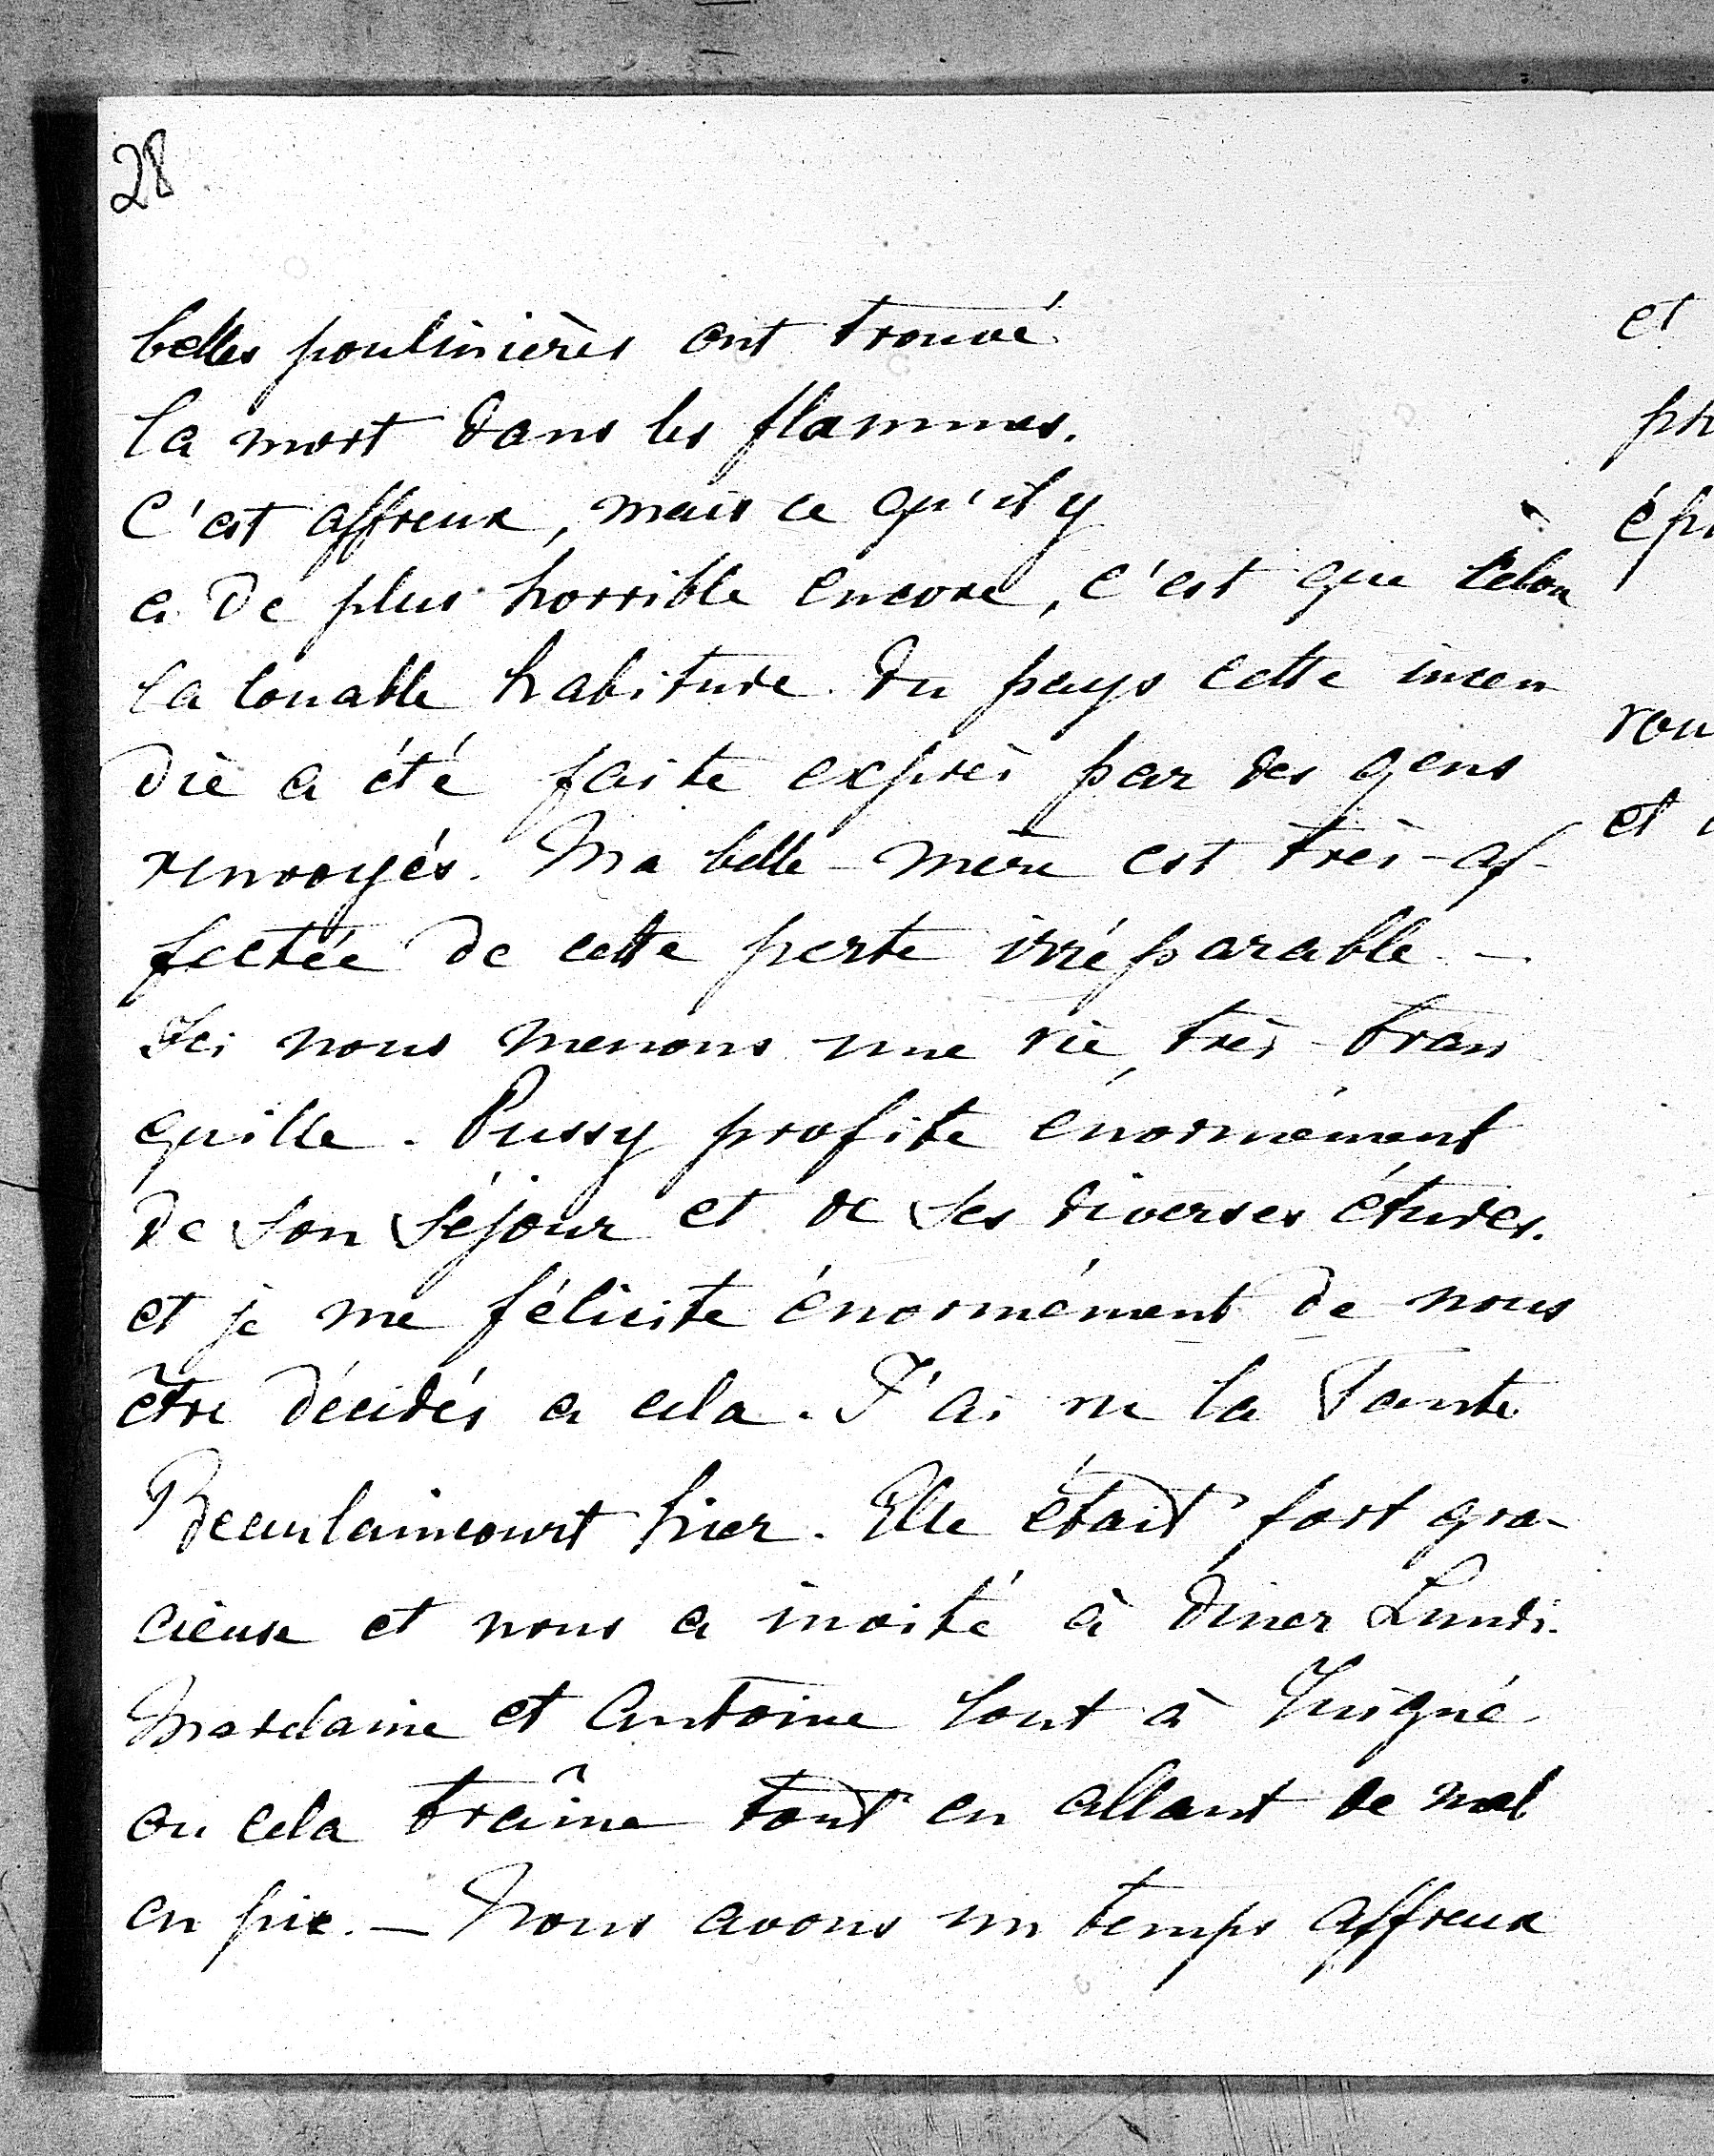 28
belles poulinières ont trouvé
la mort dans les flammes.
C'est affreux, mais ce qu'il y
a de plus horrible encore, c'est que selon
la louable habitude du pays cette incen
die a été faite exprès par des gens
renvoyés. Ma belle-mère est très-af-
fectée de cette perte irréparable. -
Ici nous menons une vie très tran
quille. Pussy profite énormément
de son séjour et de ses diverses études.
et je me félicite énormément de nous
être décidés a cela. J'ai vu la Tante
Beaulaincourt hier. Elle était fort gra-
cieuse et nous a invité à diner Lundi.
et Antoine sont à Juigné
ou cela traîne tout en allant de mal
en pix. — Nous avons un temps affreux
et
ép
rou
et